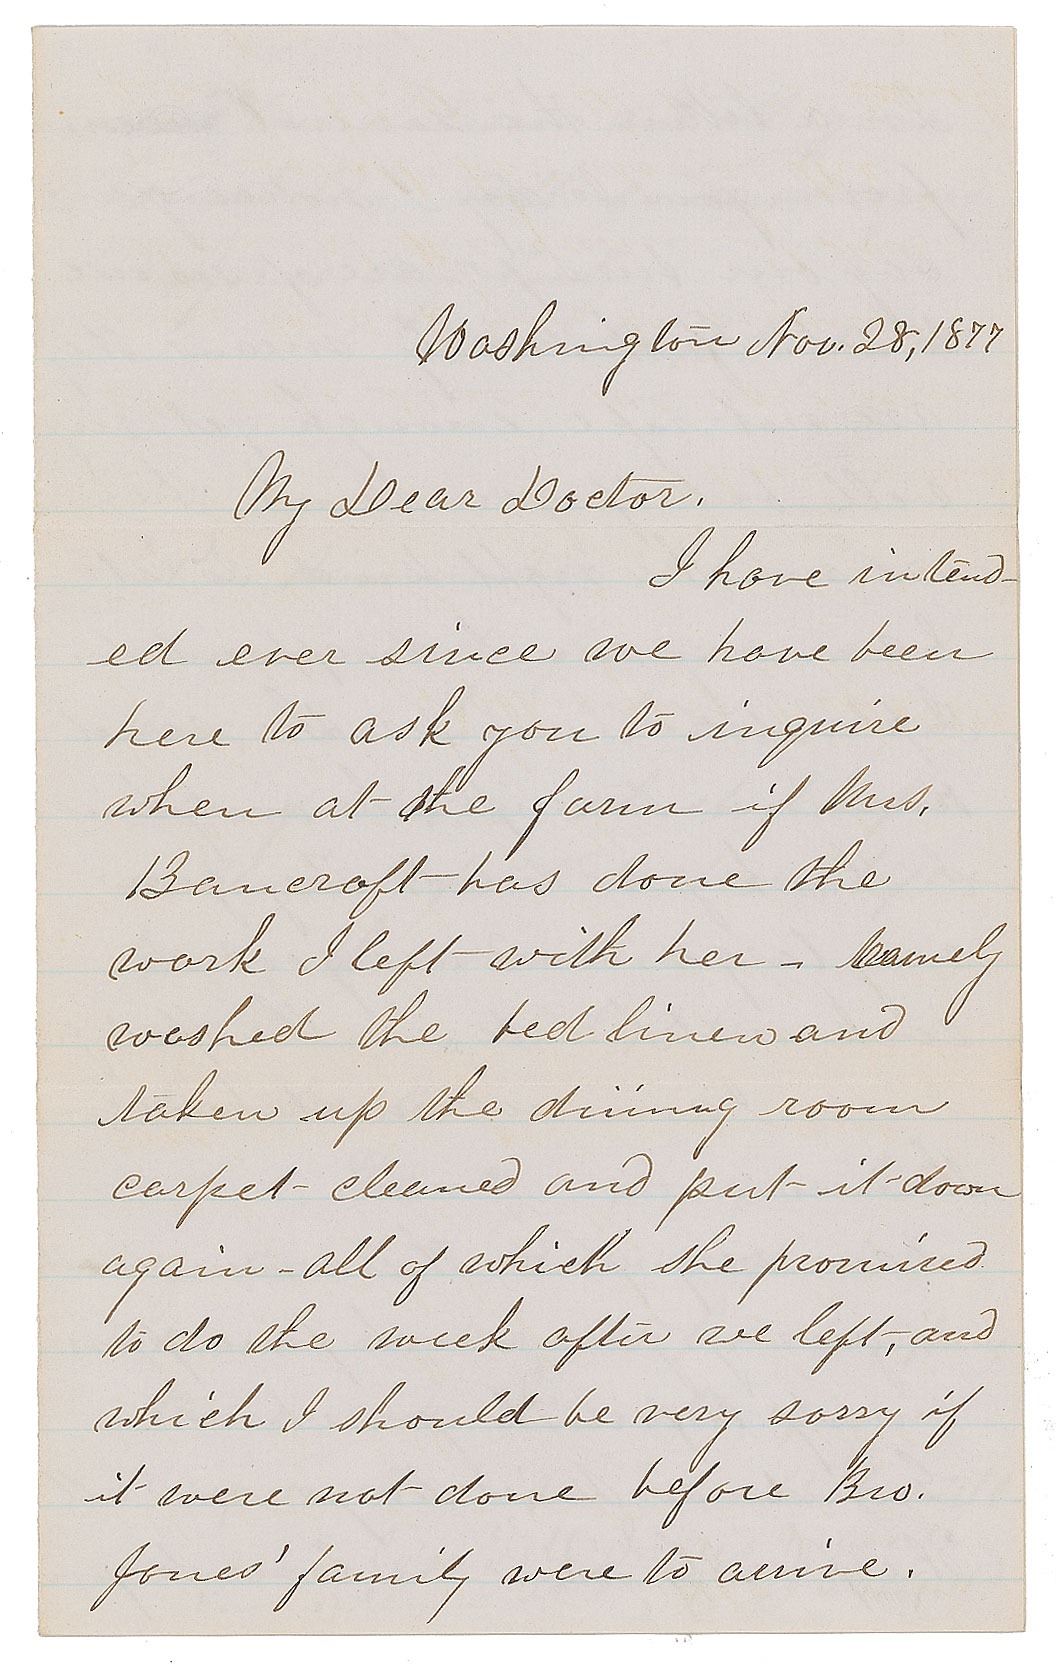 Washington Nov. 28, 1877
My Dear Doctor.
I have intend-
ed ever since we have been
here to ask you to inquire
when at the farm if Mrs.
Bancroft has done the
work I left with her - namely
washed the bed linen and
taken up the dining room
carpet - cleaned and put it down
again - all of which she promised
to do the week after we left, and
which I should be very sorry if
it were not done before Bro.
Jones' family were to arrive.